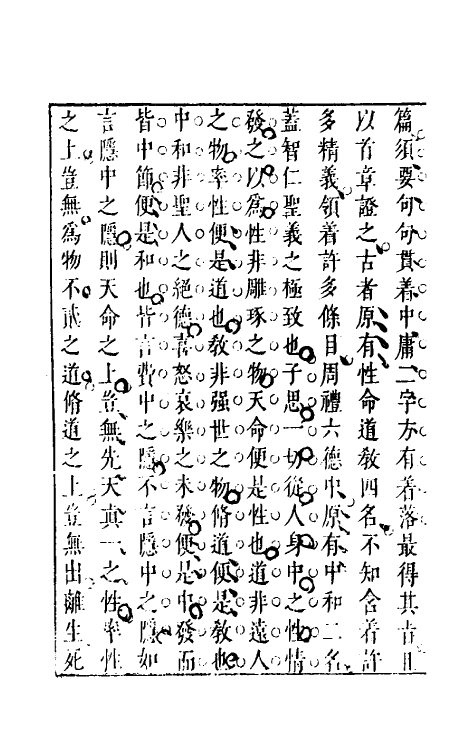 篇須要句句貫着中庸二字方有着落最得其旨且
以首章證之古者原有性命道敎四名不知含着許
多精義領着許多條目周禮六德中原有中和二名
蓋智仁聖義之極致也子思一切從人身中之性情
發之以爲性非雕琢之物天命便是性也道非遠人
之物率性便是道也敎非强世之物脩道便是敎也
中和非聖人之絕德喜怒哀樂之未發便是中發而
皆中節便是和也皆言費中之隱不言隱中之隱如
言隱中之隱則天命之上豈無先天眞一之性率性
之上豈無爲物不貳之道脩道之上豈無出離生死